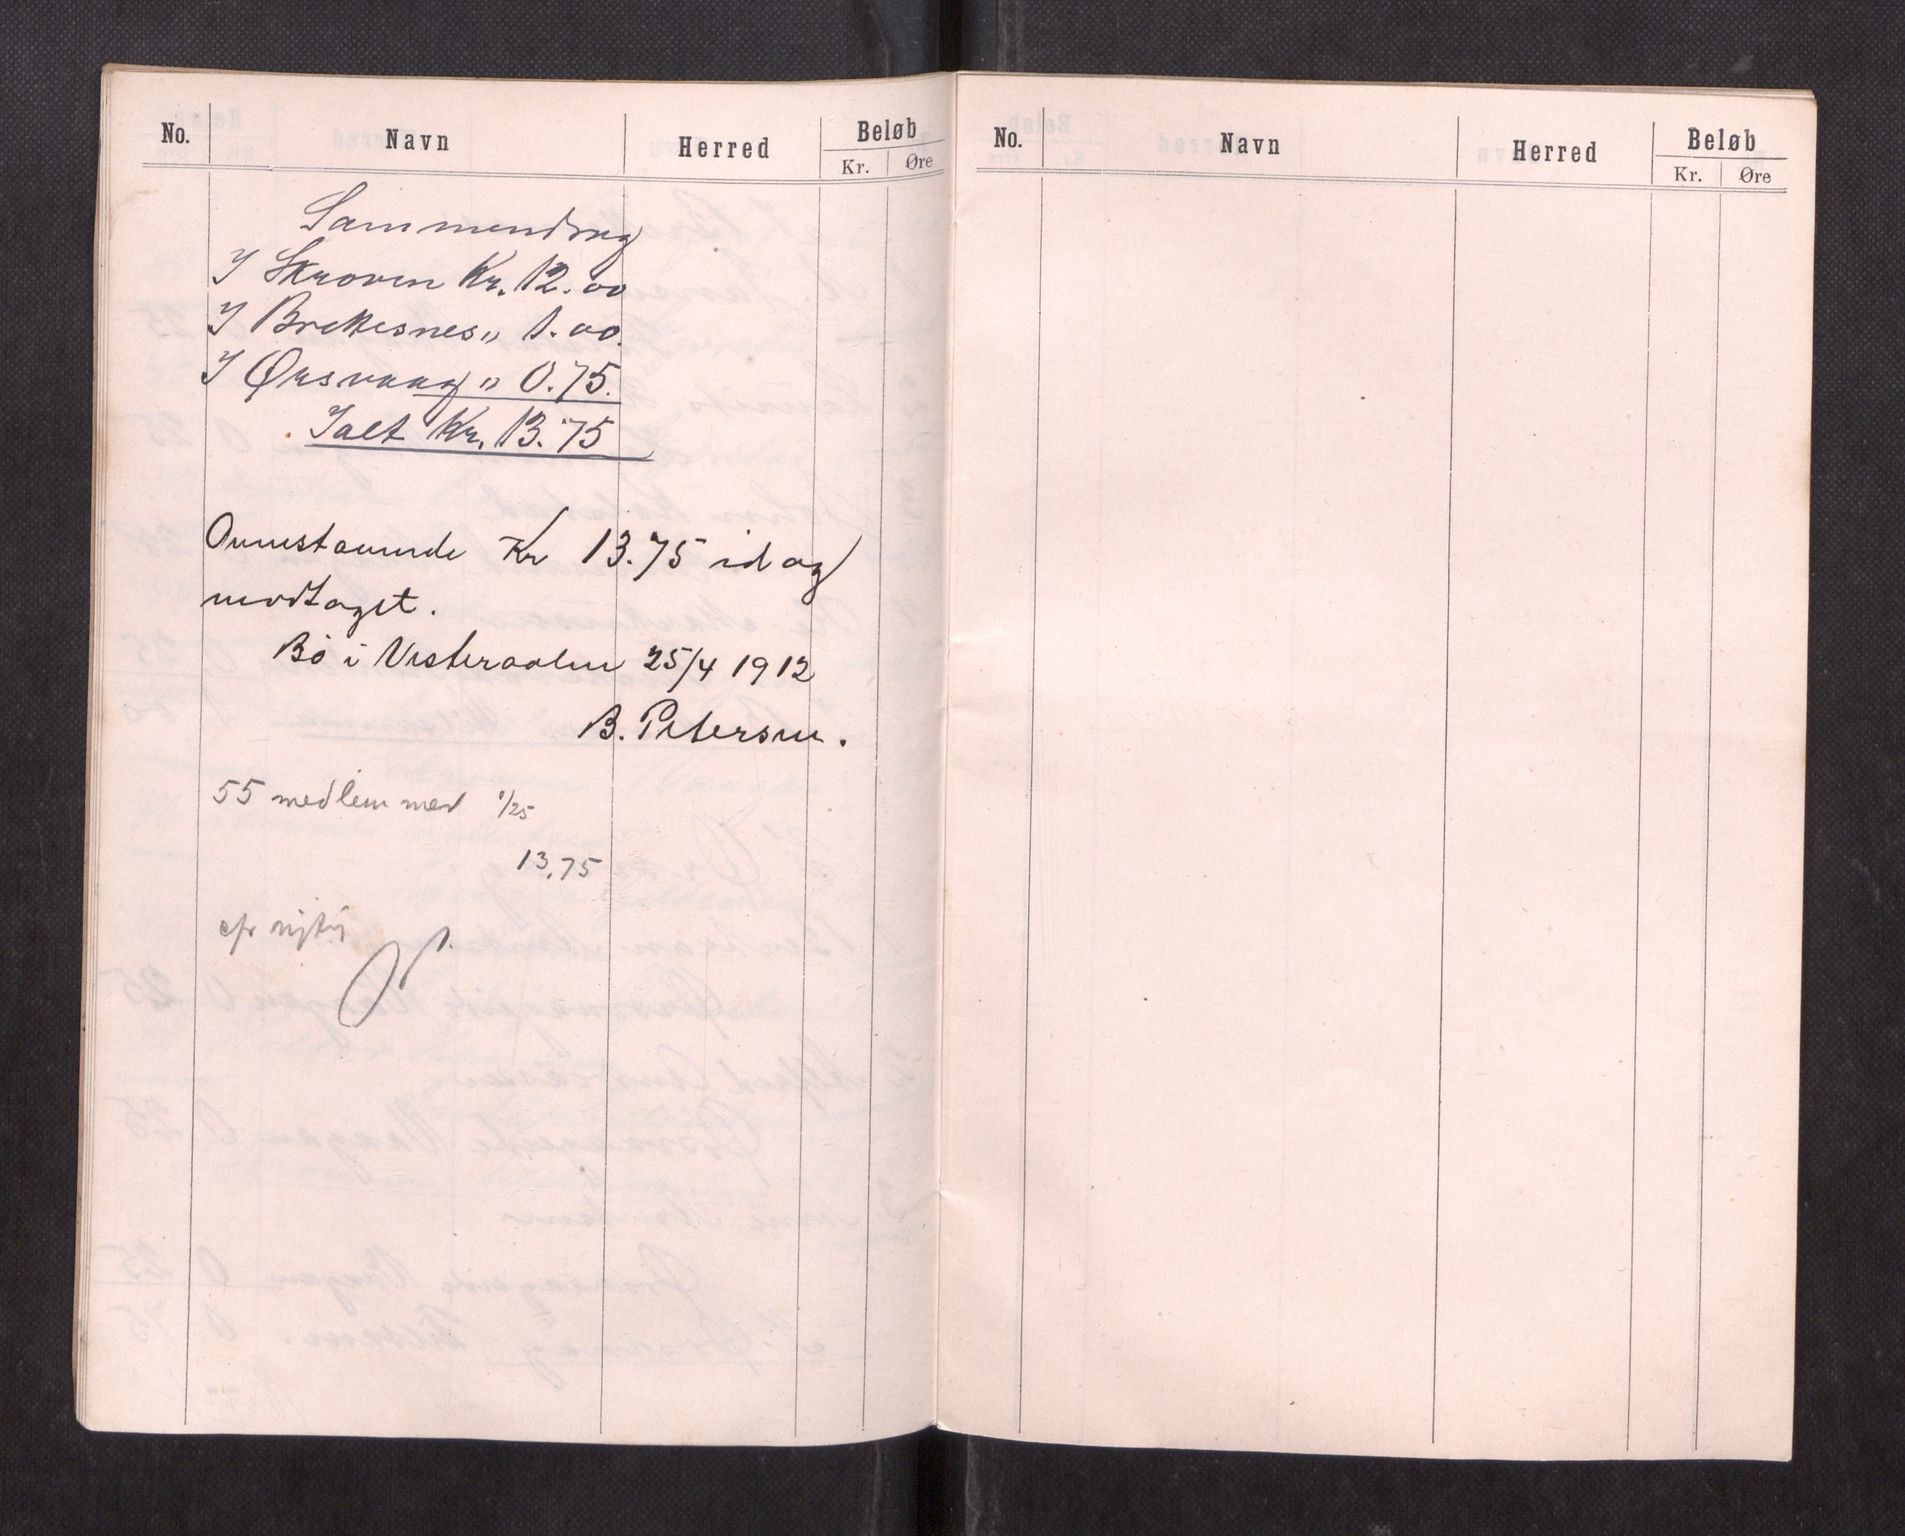 No. Navn Herred Beløb
Kr. Øre
Sammendrag
I Skroven Kr. 12.00
I Brettesnes " 1.00.
I Ørsvaag " 0.75.
Ialt Kr. 13.75
Ovenstaaende Kr 13.75 idag
modtaget.
Bø i Vesteraalen 25/4 1912
B. Petersen.
55 medlemmer 1/25
13,75
No. Navn Herred Beløb
Kr. Øre